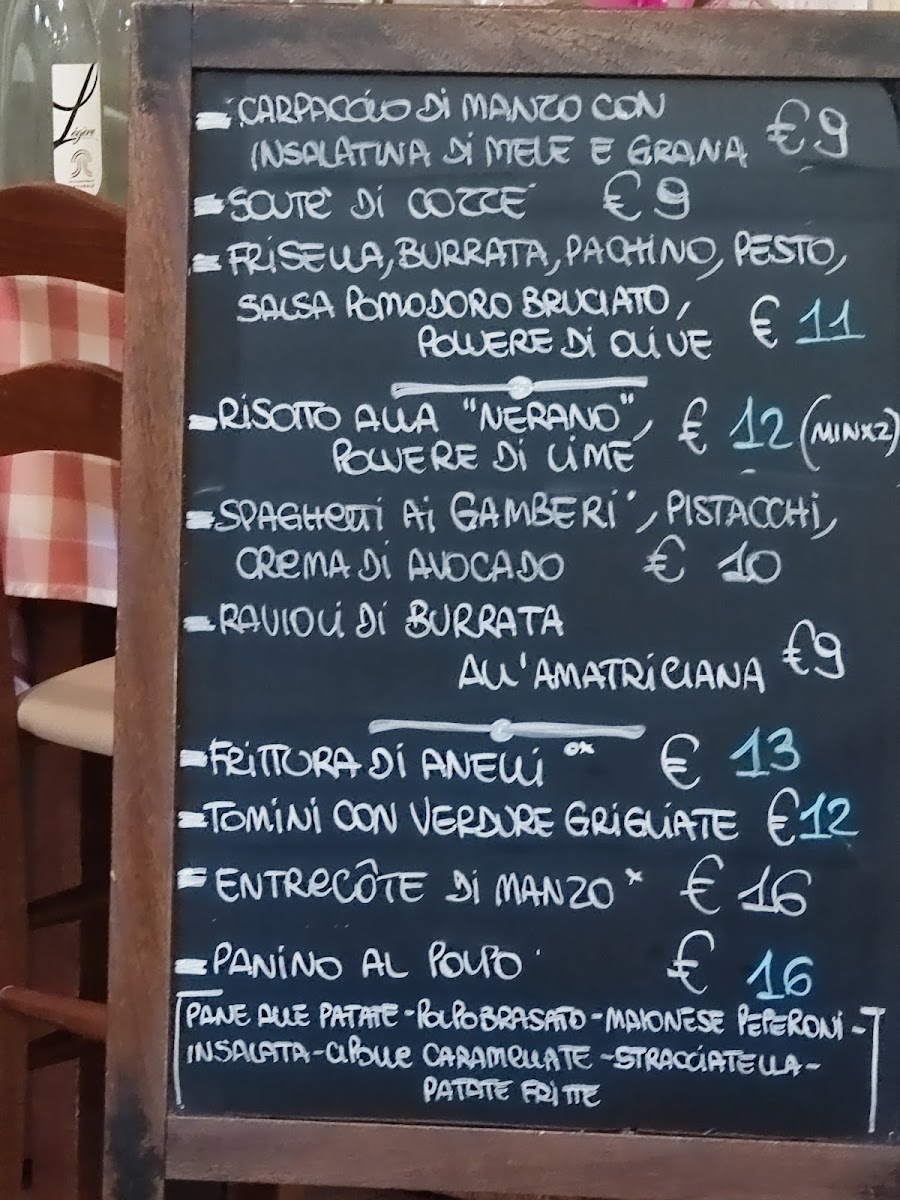 Légère
- CARPACCIO DI MANZO CON
INSALATINA DI MELE E GRANA €9
- SOUTE' DI COZZE €9
- FRISELLA, BURRATA, PACHINO, PESTO,
SALSA POMODORO BRUCIATO,
POLVERE DI OLIVE € 11
- RISOTTO ALLA "NERANO", € 12 (MINX2)
POLVERE DI LIME
- SPAGHETTI AI GAMBERI*, PISTACCHI,
CREMA DI AVOCADO € 10
- RAVIOLI DI BURRATA
ALL'AMATRICIANA €9
- FRITTURA DI ANELLI ox € 13
- TOMINI CON VERDURE GRIGLIATE €12
- ENTRECÔTE DI MANZO x € 16
- PANINO AL POLPO € 16
PANE ALLE PATATE - POLPO BRASATO - MAIONESE PEPERONI -
INSALATA - CIPOLLE CARAMELLATE - STRACCIATELLA -
PATATE FRITTE